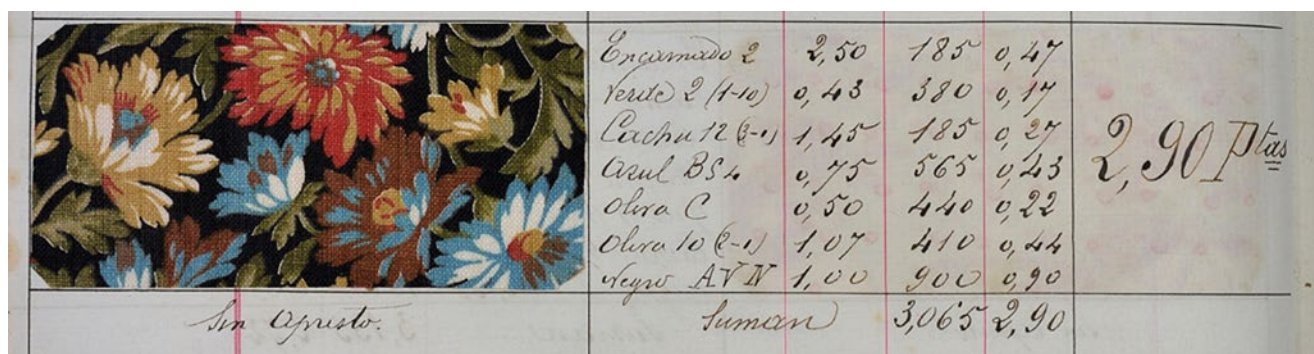 Encarnado 2 2,50 185 0,47
Verde 2 (1-10) 0,43 380 0,17
Cachu 12 (2-1) 1,45 185 0,27
Azul BS4 0,75 565 0,43
Oliva C 0,50 440 0,22
Oliva 10 (2-1) 1,07 410 0,44
Negro AVN 1,00 900 0,90
2,90 Ptas
Sin Apresto. Suman 3,065 2,90